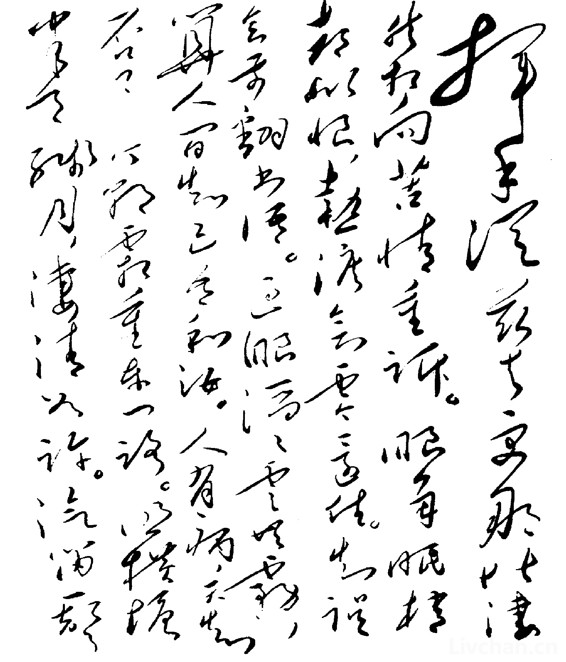 挥手从兹去更那堪凄
然相向苦情重诉。眼角眉梢
都似恨,热泪欲零还住。知误
会前翻书语。过眼滔滔云共雾,
算人间知己吾和汝。人有病,天知
否?今朝霜重东门路。照横塘
半天残月,凄清如许。汽笛一声
Livchan.cn